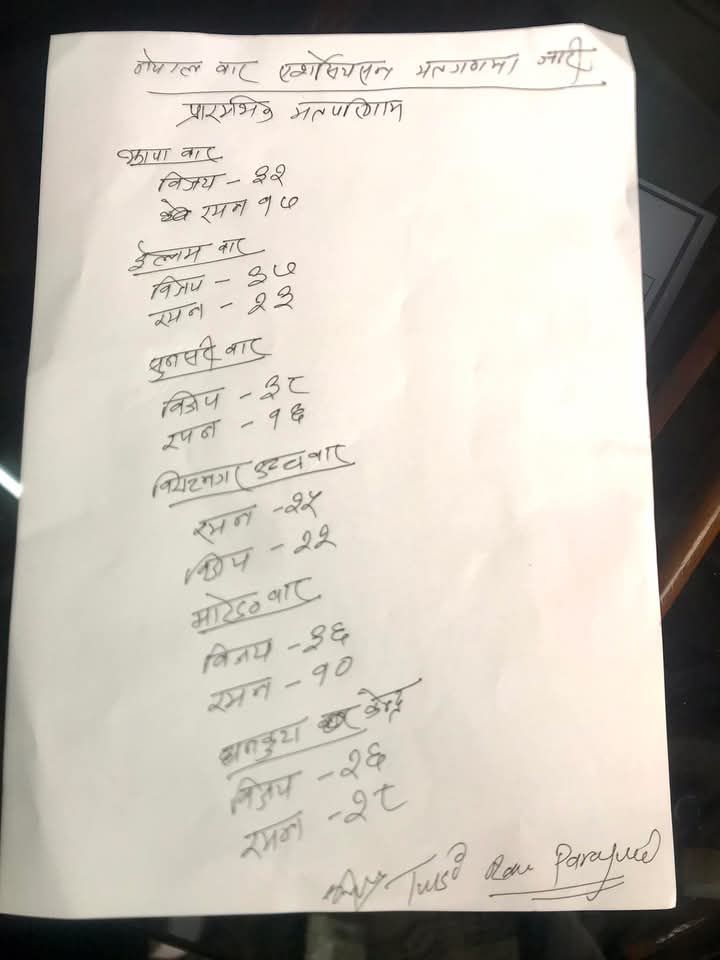 नेपाल वार एशोसियसन मतगणना जारी
प्रारम्भिक मतपरिणाम
झापा वार
विजय - ३२
रमन १७
ईलाम वार
विजय - ३७
रमन - २३
सुनसरी वार
विजय - ३८
रमन - १६
विराटनगर उच्च वार
रमन - २५
विजय - २२
मोरङ वार
विजय - ३६
रमन - १०
धनकुटा केन्द्र
विजय - २६
रमन - २८
Tulsi Ram Parajuli